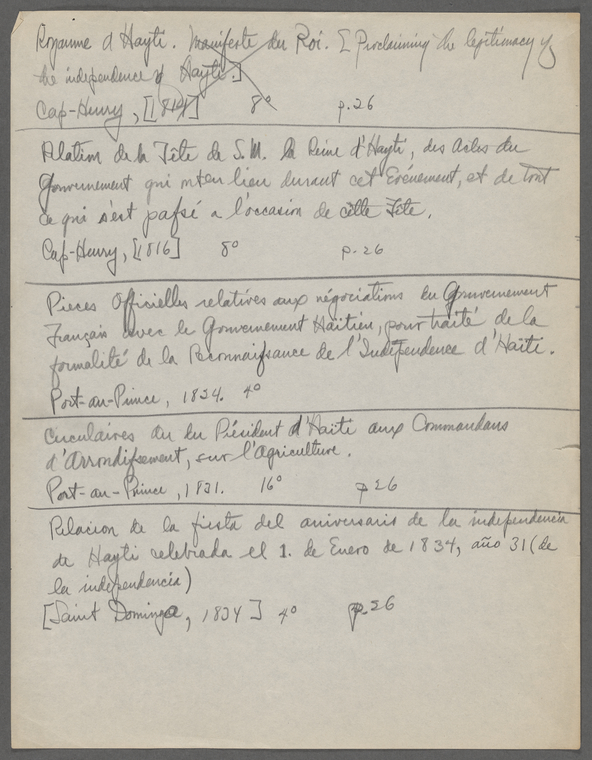 Royaume d'Hayti. Manifeste du Roi. [Proclaiming the legitimacy of
the independence of Hayti.]
Cap-Henry, [1814] 8° p.26
Relation de la Fête de S.M. la Reine d'Hayti, des Actes du
Gouvernement qui ont eu lieu durant cet Evénement, et de tout
ce qui s'est passé a l'occasion de cette Fête.
Cap-Henry, [1816] 8° p.26
Pieces Officielles relatives aux négociations du Gouvernement
Français avec le Gouvernement Haïtien, pour traité de la
formalité de la Reconnaissance de l'Indépendence d'Haïti.
Port-au-Prince, 1824. 4°
Circulaires du Président d'Haiti aux Commandans
d'Arrondissement, sur l'Agriculture.
Port-au-Prince, 1831. 16° p26
Relacion de la fiesta del aniversario de la independencia
de Hayti celebrada el 1. de Enero de 1834, año 31 (de
la independencia)
[Saint Domingo, 1834] 4° p.26